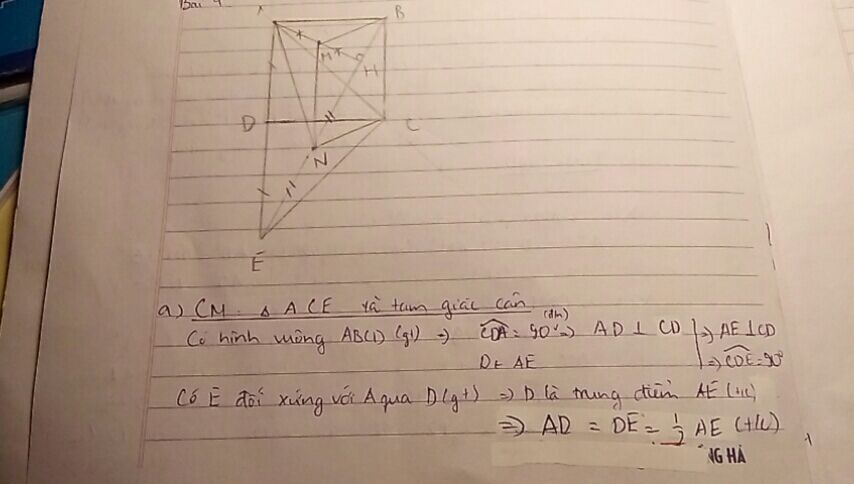 Bài 4
A
B
M
H
D
C
N
E
a) CM: Δ ACE là tam giác cân
Có hình vuông ABCD (gt) => CDA = 90° (đn) => AD ⊥ CD => AE ⊥ CD
D ∈ AE => CDE = 90°
Có E đối xứng với A qua D (gt) => D là trung điểm AE (t/c)
=> AD = DE = 1/2 AE (t/c)
NG HÀ